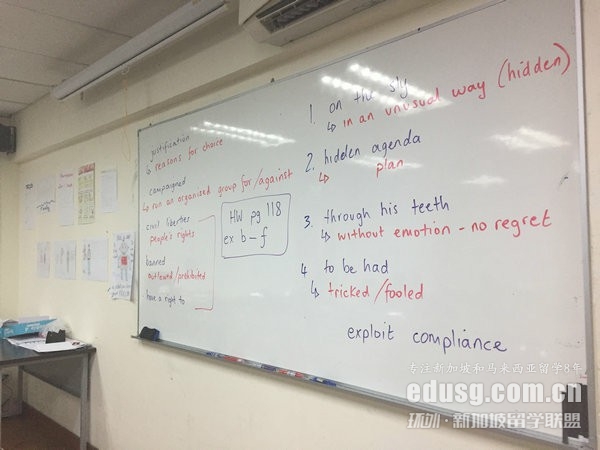 justification
↳ reasons for choice
campaigned
↳ run an organized group for/against
civil liberties
people's rights
banned
outlawed/prohibited
have a right to
HW pg 118
ex b – f
1. on the sly
↳ in an unusual way (hidden)
2. hidden agenda
↳ plan
3. through his teeth
↳ without emotion – no regret
4. to be had
↳ tricked/fooled
exploit compliance
专注新加坡和马来西亚留学8年
edusg.com.cn
环外·新加坡留学联盟